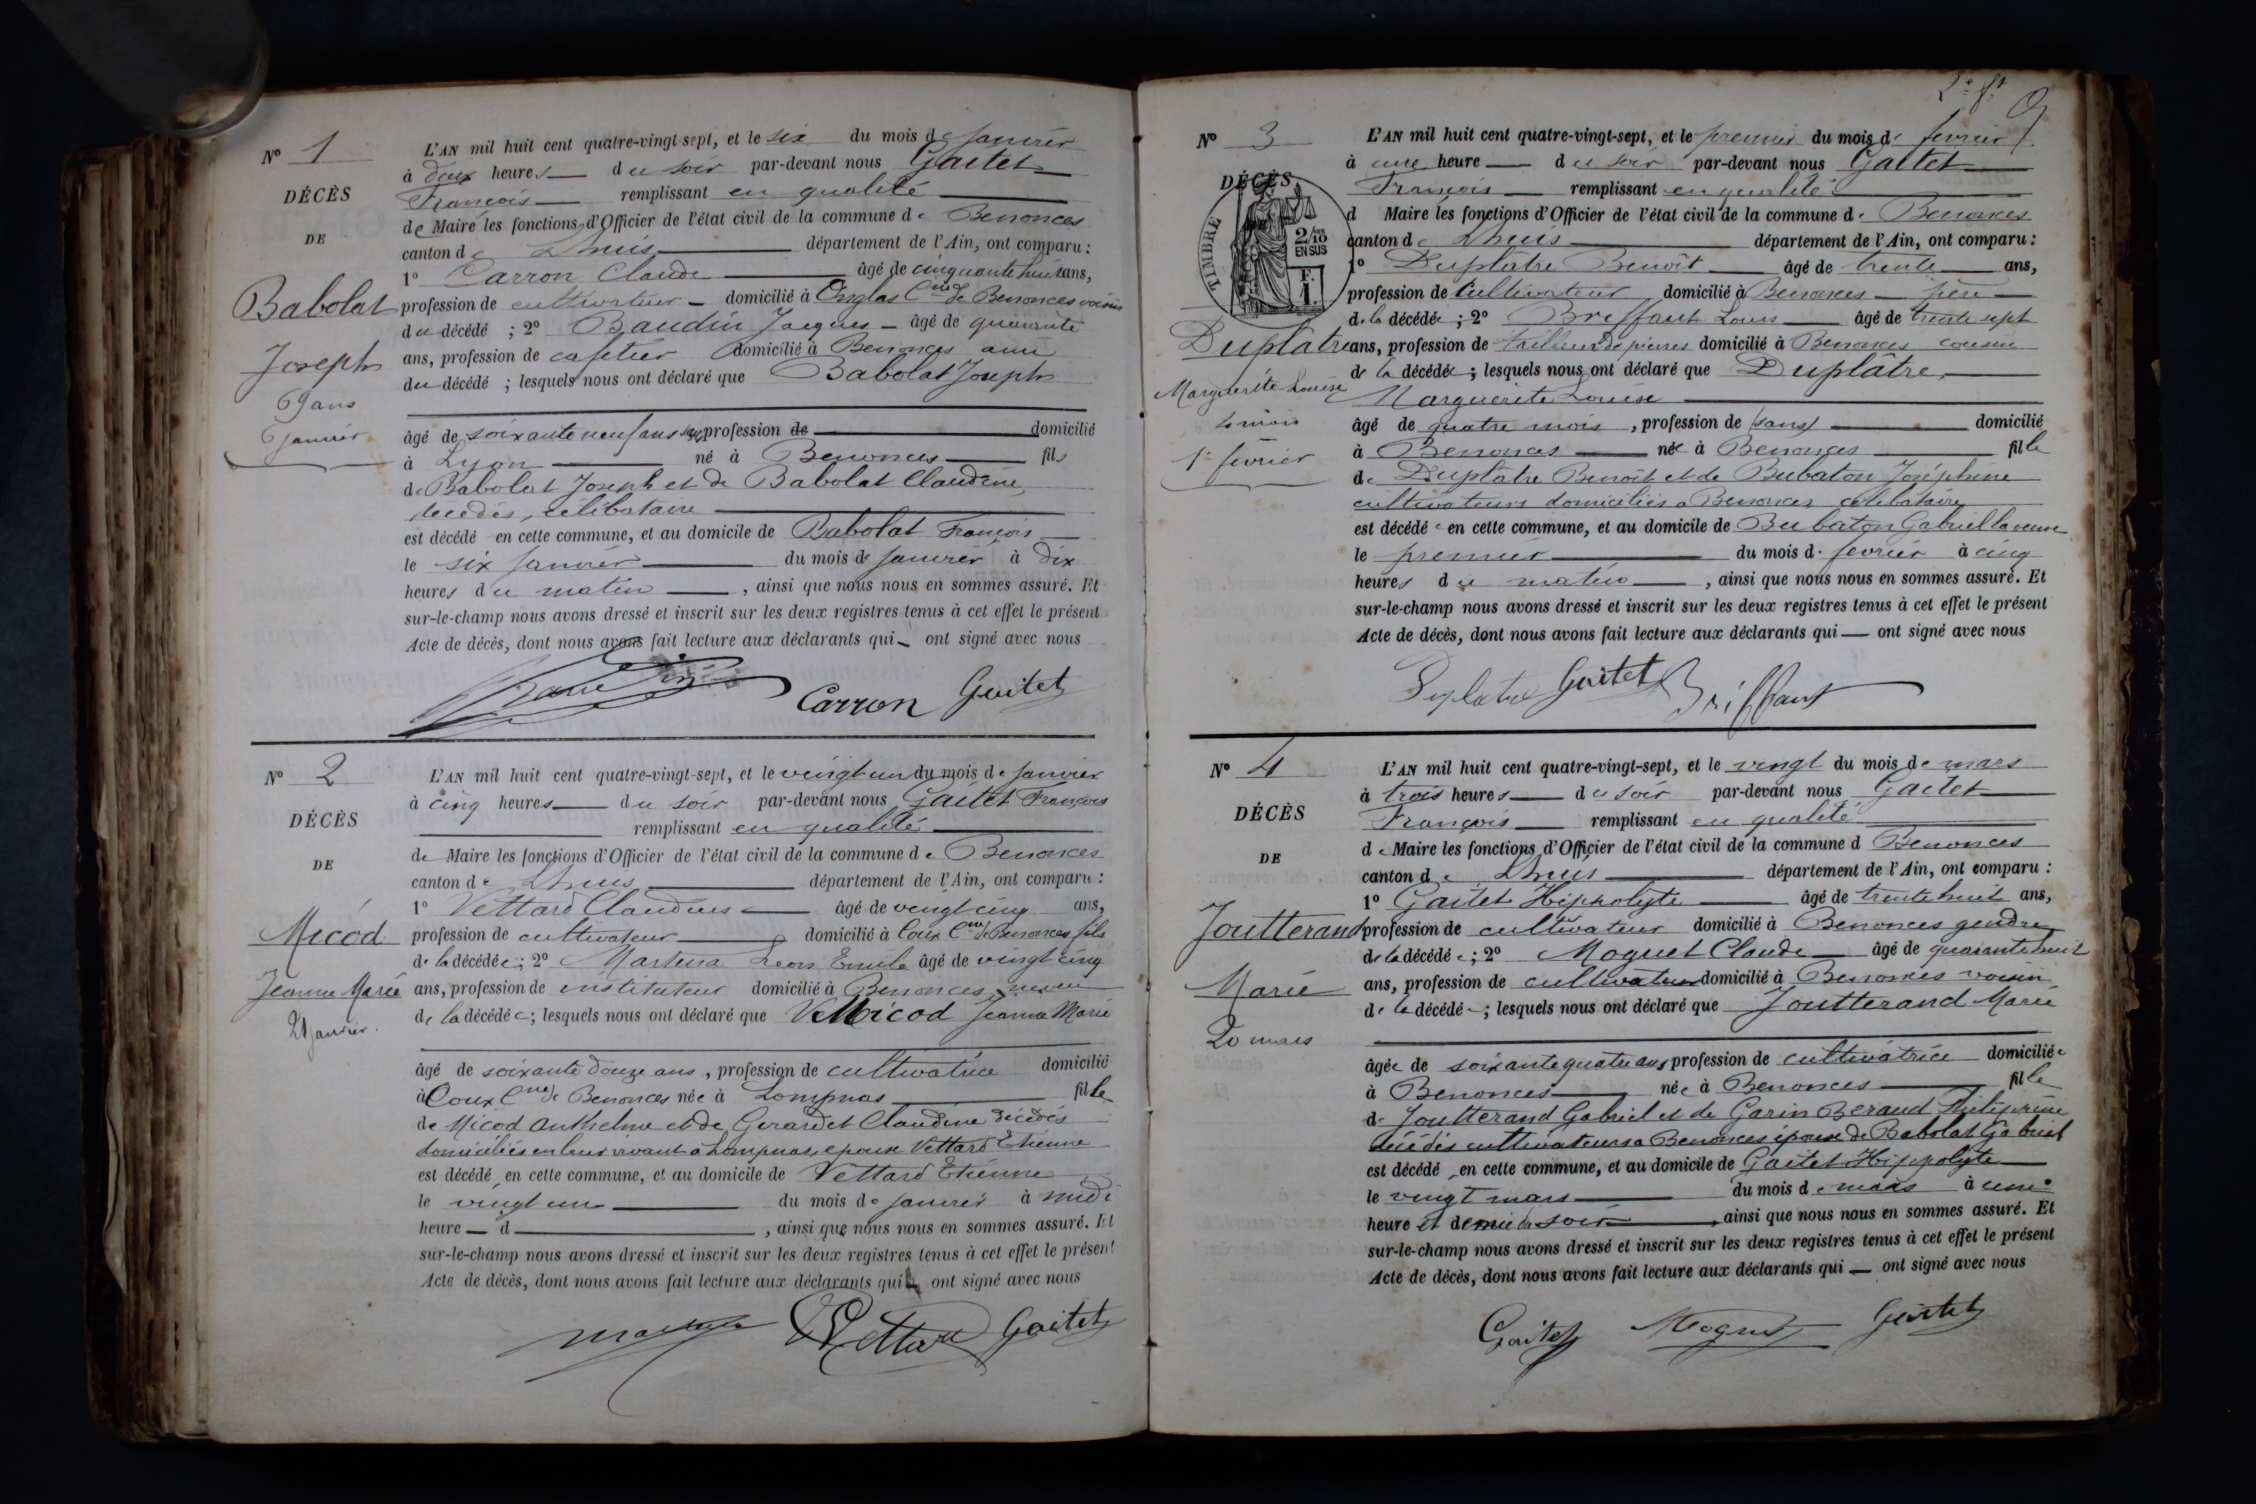 Nº 1
DÉCÈS
DE
Babolat
Joseph
69 ans
6 janvier
L'AN mil huit cent quatre-vingt-sept, et le six du mois de janvier
à deux heures du soir par-devant nous Gaitet
François remplissant en qualité
de Maire les fonctions d'Officier de l'état civil de la commune de Benonces
canton de Lhuis département de l'Ain, ont comparu :
1º Carron Claude âgé de cinquante huit ans,
profession de cultivateur domicilié à Onglas Cne de Benonces voisin
du décédé ; 2º Baudin Jacques âgé de quarante
ans, profession de cafetier domicilié à Benonces ami
du décédé ; lesquels nous ont déclaré que Babolat Joseph
âgé de soixante neuf ans profession de domicilié
à Lyon né à Benonces fils
de Babolat Joseph et de Babolat Claudine
décédés, célibataire
est décédé en cette commune, et au domicile de Babolat François
le six janvier du mois de janvier à dix
heures du matin, ainsi que nous nous en sommes assuré. Et
sur-le-champ nous avons dressé et inscrit sur les deux registres tenus à cet effet le présent
Acte de décès, dont nous avons fait lecture aux déclarants qui ont signé avec nous
Carron Gaitet
Nº 2
DÉCÈS
DE
Micod
Jeanne Marie
21 janvier.
L'AN mil huit cent quatre-vingt-sept, et le vingt un du mois de janvier
à cinq heures du soir par-devant nous Gaitet François
remplissant en qualité
de Maire les fonctions d'Officier de l'état civil de la commune de Benonces
canton de Lhuis département de l'Ain, ont comparu :
1º Vettard Claudius âgé de vingt cinq ans,
profession de cultivateur domicilié à Coux Cne de Benonces fils
de la décédée ; 2º Martina Léon Emile âgé de vingt cinq
ans, profession de instituteur domicilié à Benonces, neveu
de la décédée ; lesquels nous ont déclaré que Micod Jeanne Marie
âgé de soixante douze ans, profession de cultivatrice domicilié
à Coux Cne de Benonces née à Lompnas fille
de Micod Anthelme et de Gerardet Claudine décédés
domiciliés en leur vivant à Lompnas, epouse Vettard Etienne
est décédé en cette commune, et au domicile de Vettard Etienne
le vingt un du mois de janvier à midi
heure d , ainsi que nous nous en sommes assuré. Et
sur-le-champ nous avons dressé et inscrit sur les deux registres tenus à cet effet le présent
Acte de décès, dont nous avons fait lecture aux déclarants qui ont signé avec nous
Vettard Gaitet
Nº 3
DÉCÈS
TIMBRE
2/10 EN SUS
F. 1.
Duplâtre
Marguerite Louise
4 mois
1er février
L'AN mil huit cent quatre-vingt-sept, et le premier du mois de février
à une heure du soir par-devant nous Gaitet
François remplissant en qualité
d Maire les fonctions d'Officier de l'état civil de la commune de Benonces
canton de Lhuis département de l'Ain, ont comparu :
1º Duplâtre Benoît âgé de trente ans,
profession de cultivateur domicilié à Benonces père
de la décédée ; 2º Briffaut Louis âgé de trente sept
ans, profession de tailleur de pierres domicilié à Benonces cousin
de la décédée ; lesquels nous ont déclaré que Duplâtre
Marguerite Louise
âgé de quatre mois, profession de (sans) domicilié
à Benonces née à Benonces fille
de Duplâtre Benoît et de Bubaton Joséphine
cultivateurs domiciliés à Benonces célibataire
est décédé en cette commune, et au domicile de Bubaton Gabriel la veuve
le premier du mois de février à cinq
heures du matin, ainsi que nous nous en sommes assuré. Et
sur-le-champ nous avons dressé et inscrit sur les deux registres tenus à cet effet le présent
Acte de décès, dont nous avons fait lecture aux déclarants qui ont signé avec nous
Duplatre Gaitet Briffaut
Nº 4
DÉCÈS
DE
Joutterand
Marie
20 mars
L'AN mil huit cent quatre-vingt-sept, et le vingt du mois de mars
à trois heures du soir par-devant nous Gaitet
François remplissant en qualité
de Maire les fonctions d'Officier de l'état civil de la commune d Benonces
canton de Lhuis département de l'Ain, ont comparu :
1º Gaitet Hippolyte âgé de trente huit ans,
profession de cultivateur domicilié à Benonces gendre
de la décédée ; 2º Moguet Claude âgé de quarante huit
ans, profession de cultivateur domicilié à Benonces voisin
de la décédée ; lesquels nous ont déclaré que Joutterand Marie
âgée de soixante quatre ans profession de cultivatrice domiciliée
à Benonces née à Benonces fille
de Joutterand Gabriel et de Garin Beraud
décédés cultivateurs à Benonces épouse de Babolat Gabriel
est décédé en cette commune, et au domicile de Gaitet Hippolyte
le vingt mars du mois de mars à une
heure et demie du soir, ainsi que nous nous en sommes assuré. Et
sur-le-champ nous avons dressé et inscrit sur les deux registres tenus à cet effet le présent
Acte de décès, dont nous avons fait lecture aux déclarants qui ont signé avec nous
Gaitet Moguet Gaitet